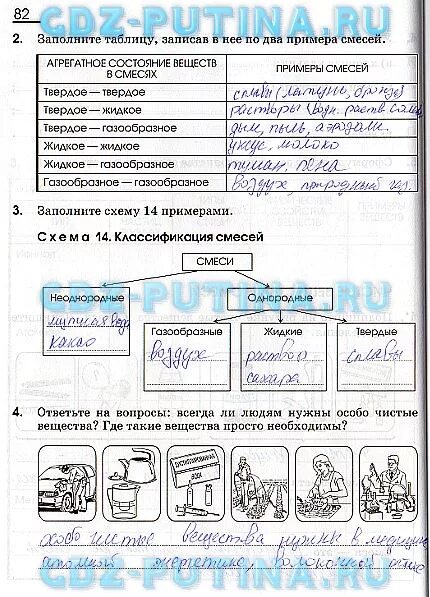 GDZ-PUTINA.RU
82
2. Заполните таблицу, записав в нее по два примера смесей.
АГРЕГАТНОЕ СОСТОЯНИЕ ВЕЩЕСТВ В СМЕСЯХ
ПРИМЕРЫ СМЕСЕЙ
Твердое — твердое сплавы (латунь, бронза)
Твердое — жидкое растворы (водн. раств. солей)
Твердое — газообразное дым, пыль, аэрозоли.
Жидкое — жидкое уксус, молоко
Жидкое — газообразное туман, пена
Газообразное — газообразное воздух, природный газ.
3. Заполните схему 14 примерами.
Схема 14. Классификация смесей
СМЕСИ
GDZ-PUTINA.RU
Неоднородные
Однородные
Газообразные
Жидкие
Твердые
какао
воздух
раствор
сахара
сплавы
4. Ответьте на вопросы: всегда ли людям нужны особо чистые
вещества? Где такие вещества просто необходимы?
ДИСТИЛЛИРОВАННАЯ
ВОДА
особо чистые вещества нужны в медицине
атомной энергетике, волоконной оптике
GDZ-PUTINA.RU